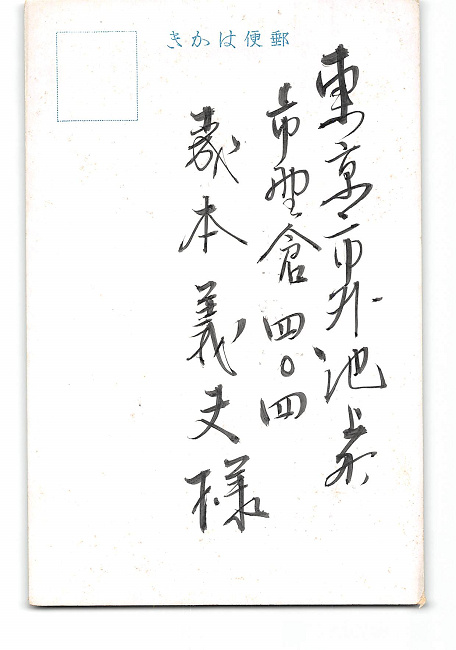 郵便はかき
東京市外池上
市野倉四〇四
本義夫様